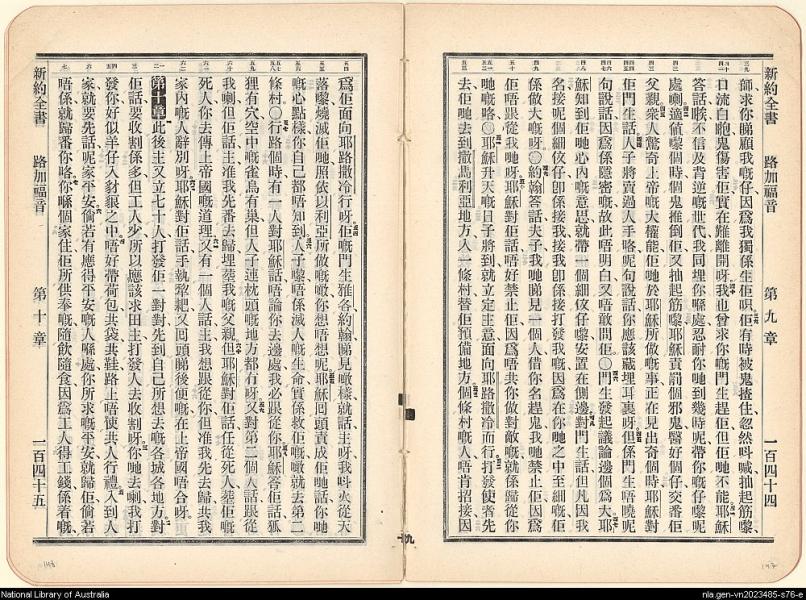 新約全書 路加福音 第九章 一百四十四
師求你睇顧我嘅仔因爲我獨係生佢有時被鬼揸住忽然呌喊抽起筋嚟
口流白胞鬼傷害佢實在難離開呀我也曾求你嘅門生趕佢但佢哋不能耶穌
答話不信及背逆嘅世代我同埋你喺處忍耐你哋到幾時呢帶你嘅仔嚟呢
處喇適値嚟個時個鬼推倒佢又抽起筋嚟耶穌責罰個邪鬼醫好個仔交番佢
父親衆人驚奇上帝嘅大權能佢哋於耶穌所做嘅事正在見出奇個時耶穌對
佢門生話人子將賣過人手咯呢句說話你應該藏埋耳裏呀但係門生唔曉呢
句說話因爲係隱密嘅故此唔明白又唔敢問佢〇門生發起議論邊個爲大耶
穌知到佢哋心內嘅意思就帶一個細蚊仔嚟安置在側邊對門生話但凡因我
名接呢個細蚊仔卽係接我接我卽係接打發我嘅因爲在你哋之中至細嘅佢
係做大嘅呀〇約翰答話夫子我哋睇見一個人借你名趕鬼我哋禁止佢因爲
佢唔跟從我哋呀耶穌對佢話唔好禁止佢因爲唔共你做對敵嘅就係歸從你
哋嘅咯〇耶穌升天嘅日子將到就立定主意面向耶路撒冷而行打發使者先
去佢哋去到撒馬利亞地方入一條村替佢預備地方個條村嘅人唔肯招接因
爲佢面向耶路撒冷行呀佢嘅門生雅各約翰睇見噉樣就話主呀我呌火從天
落嚟燒滅佢哋照依以利亞所做嘅噉你想唔想呢耶穌囘頭責成佢哋話你哋
嘅心點樣你自己都唔知到人子嚟唔係滅人嘅生命實係救佢嘅噉就去第二
條村〇行路個時有一人對耶穌話唔論你去邊處我必跟從你耶穌答佢話狐
狸有穴空中嘅雀鳥有巢但人子連枕頭嘅地方都冇呀又對第二個人話跟從
我喇但佢話主准我先番去歸埋葬我嘅父親但耶穌對佢話任從死人葬佢嘅
死人你去傳上帝國嘅道理又有一個人話主我想跟從你但准我先去歸共我
家內嘅人辭別呀耶穌對佢話手執犂耙又囘頭睇後便嘅在上帝國唔合呀
第十章此後主又立七十人打發佢一對對先到自己所想去嘅各城各地方對
佢話要收割係多但工人少所以應該求田主打發人去收割呀你哋去喇我打
發你好似羊仔入豺狼之中唔好帶荷包共袋共鞋路上唔使共人行禮入到人
家就要先話呢家平安倘若有應得平安嘅人喺處你所求嘅平安就歸佢倘若
唔係就歸番你咯你喺個家住佢所供奉嘅隨飮隨食因爲工人得工錢係着嘅
新約全書 路加福音 第十章 一百四十五
National Library of Australia
nla.gen-vn2023485-s76-e